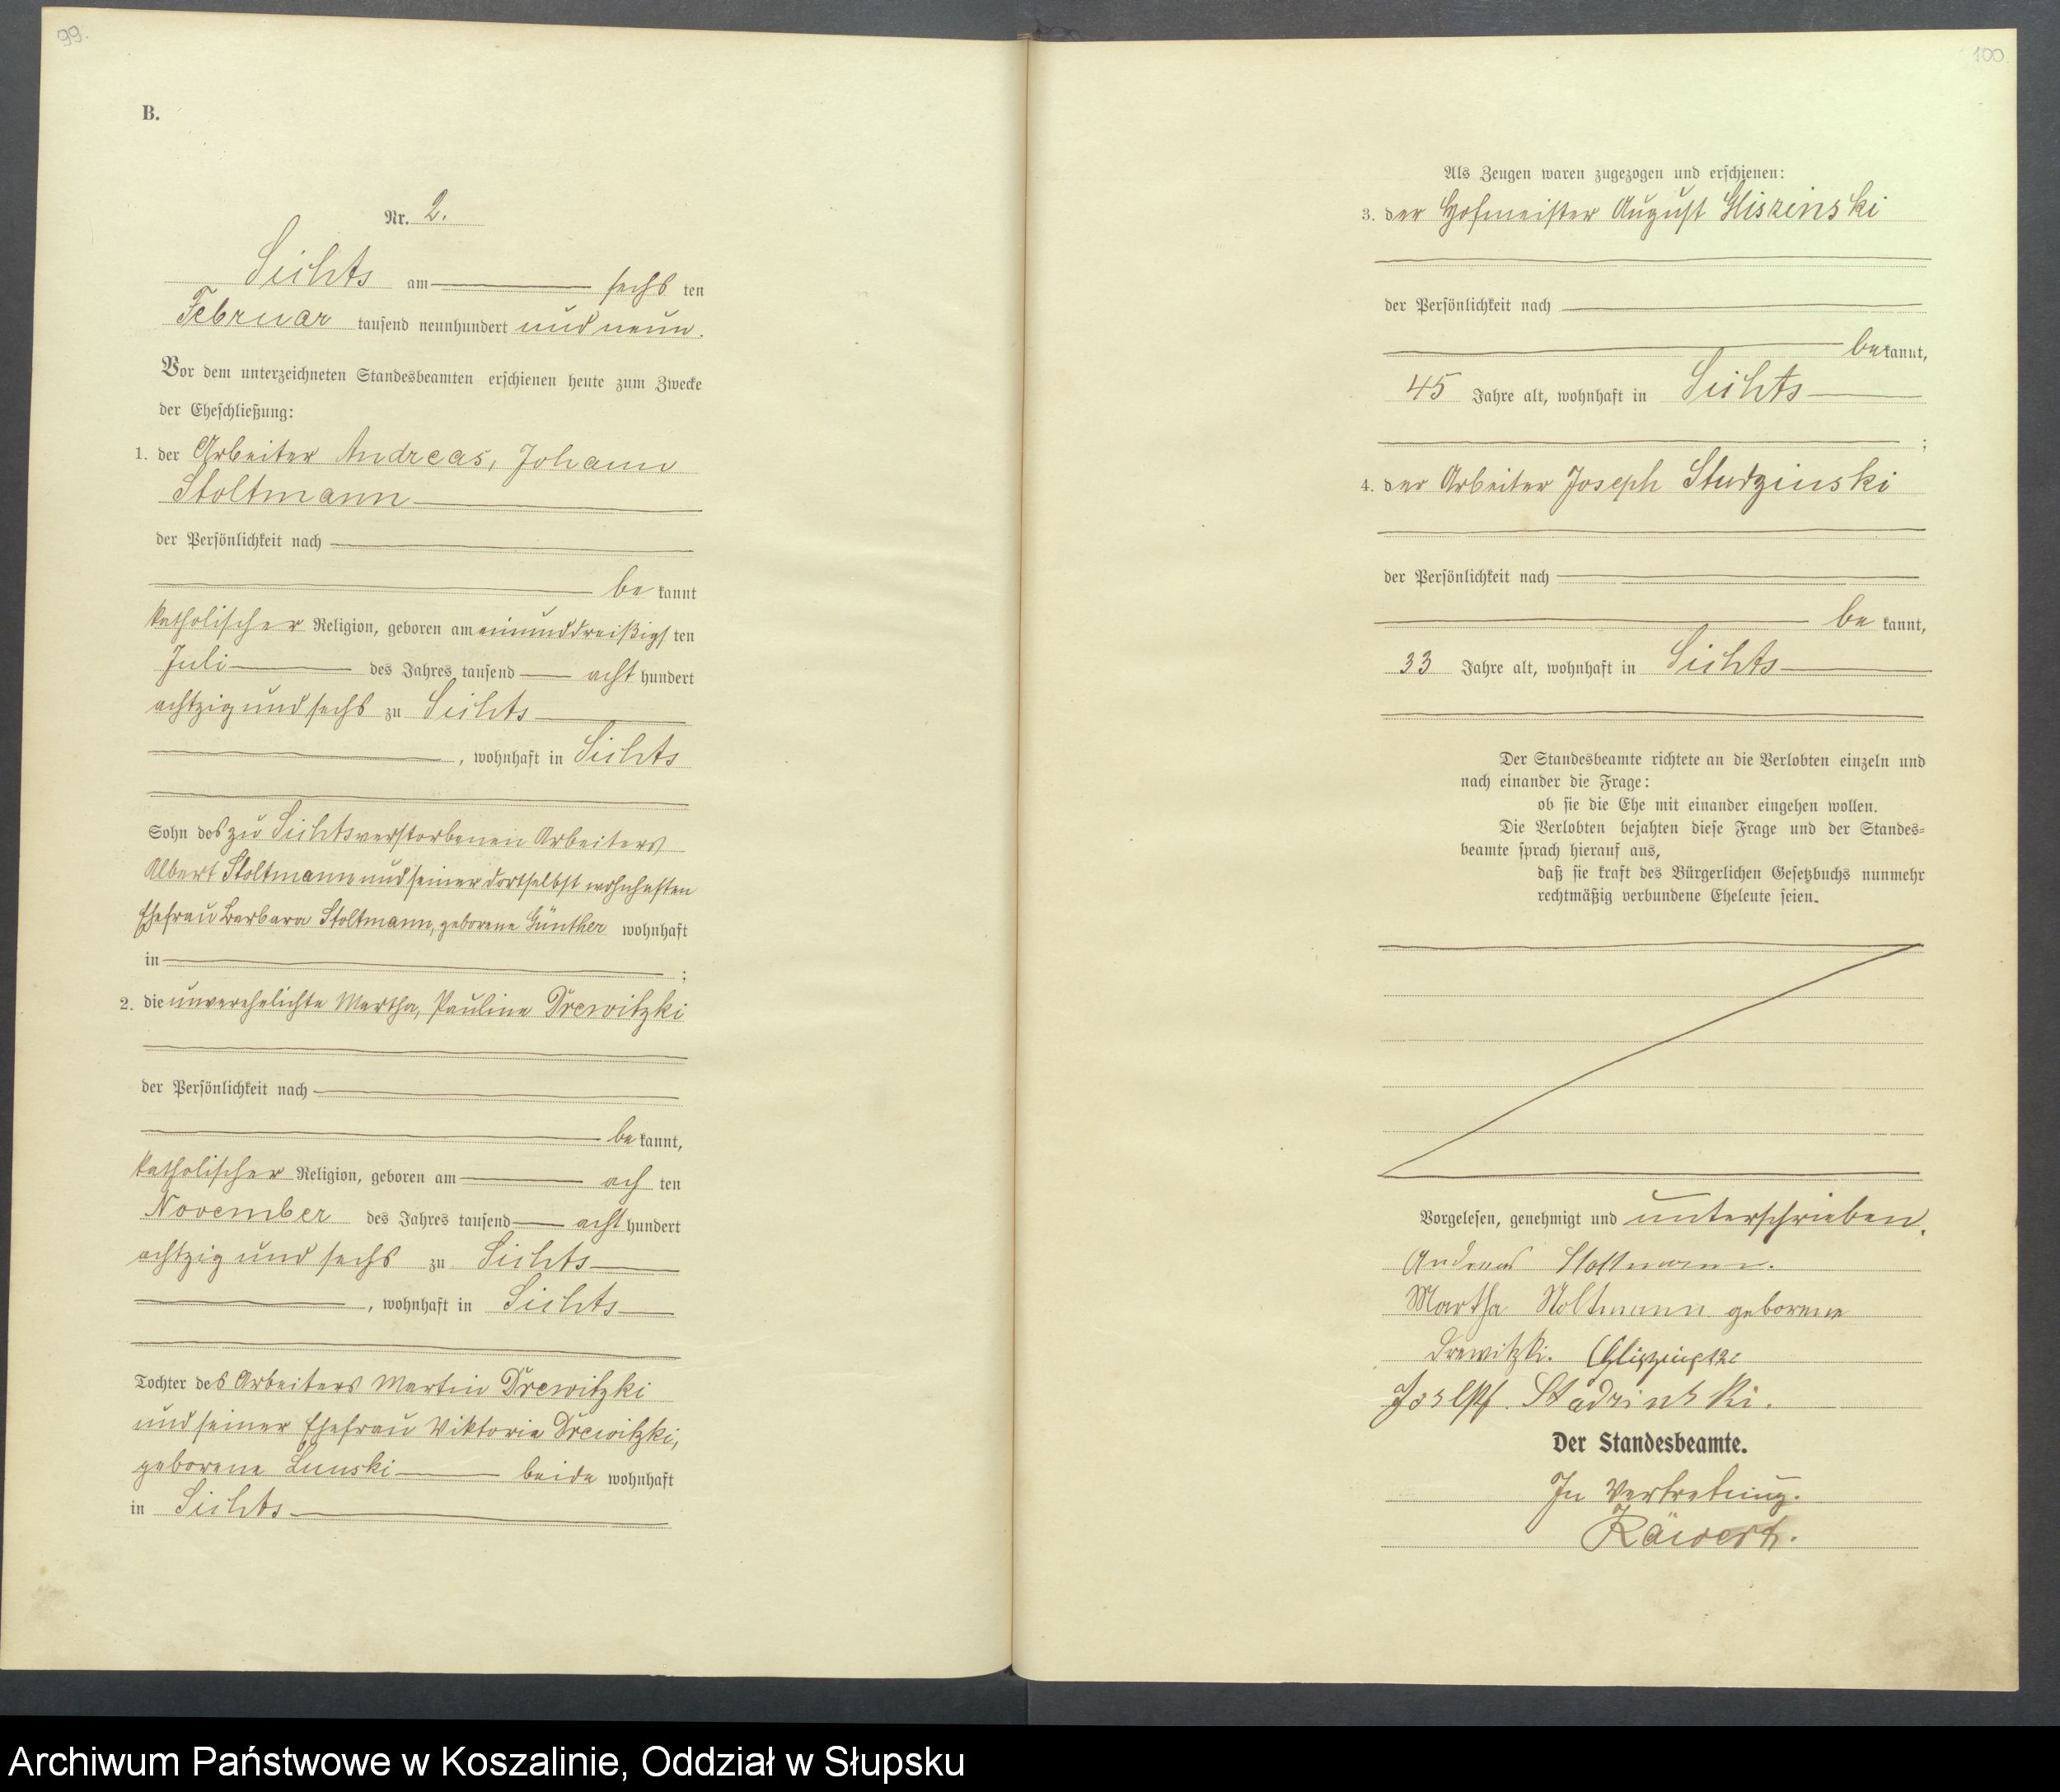 99.
B.
Nr. 2.
Sichts am sechs ten
Februar tausend neunhundert und neun.
Vor dem unterzeichneten Standesbeamten erschienen heute zum Zwecke
der Eheschließung:
1. der Arbeiter Andreas, Johann
Stoltmann
der Persönlichkeit nach
be kannt
katholischer Religion, geboren am einunddreißigs ten
Juli des Jahres tausend acht hundert
achtzig und sechs zu Sichts
, wohnhaft in Sichts
Sohn des zu Sichts verstorbenen Arbeiters
Albert Stoltmann und seiner dortselbst wohnhaften
Ehefrau Barbara Stoltmann, geborene Günther wohnhaft
in ;
2. die unverehelichte Martha, Pauline Drewitzki
der Persönlichkeit nach
be kannt,
katholischer Religion, geboren am ach ten
November des Jahres tausend acht hundert
achtzig und sechs zu Sichts
, wohnhaft in Sichts
Tochter des Arbeiters Martin Drewitzki
und seiner Ehefrau Viktoria Drewitzki,
geborene Lunski beide wohnhaft
in Sichts
100.
Als Zeugen waren zugezogen und erschienen:
3. der Hofmeister August Gliszinski
der Persönlichkeit nach
be kannt,
45 Jahre alt, wohnhaft in Sichts
;
4. der Arbeiter Joseph Studzinski
der Persönlichkeit nach
be kannt,
33 Jahre alt, wohnhaft in Sichts
Der Standesbeamte richtete an die Verlobten einzeln und
nach einander die Frage:
ob sie die Ehe mit einander eingehen wollen.
Die Verlobten bejahten diese Frage und der Standes-
beamte sprach hierauf aus,
daß sie kraft des Bürgerlichen Gesetzbuchs nunmehr
rechtmäßig verbundene Eheleute seien.
Vorgelesen, genehmigt und unterschrieben.
Andreas Stoltmann.
Martha Stoltmann geborene
Drewitzki.
Der Standesbeamte.
In Vertretung.
Archiwum Państwowe w Koszalinie, Oddział w Słupsku